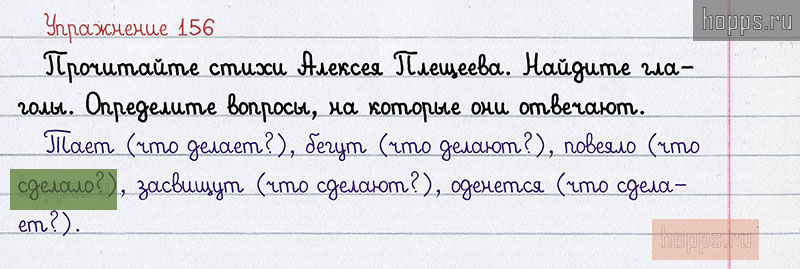 hopps.ru
Упражнение 156
Прочитайте стихи Алексея Плещеева. Найдите гла-
голы. Определите вопросы, на которые они отвечают.
Тает (что делает?), бегут (что делают?), повеяло (что
сделало?), засвищут (что сделают?), оденется (что сдела-
ет?).
hopps.ru